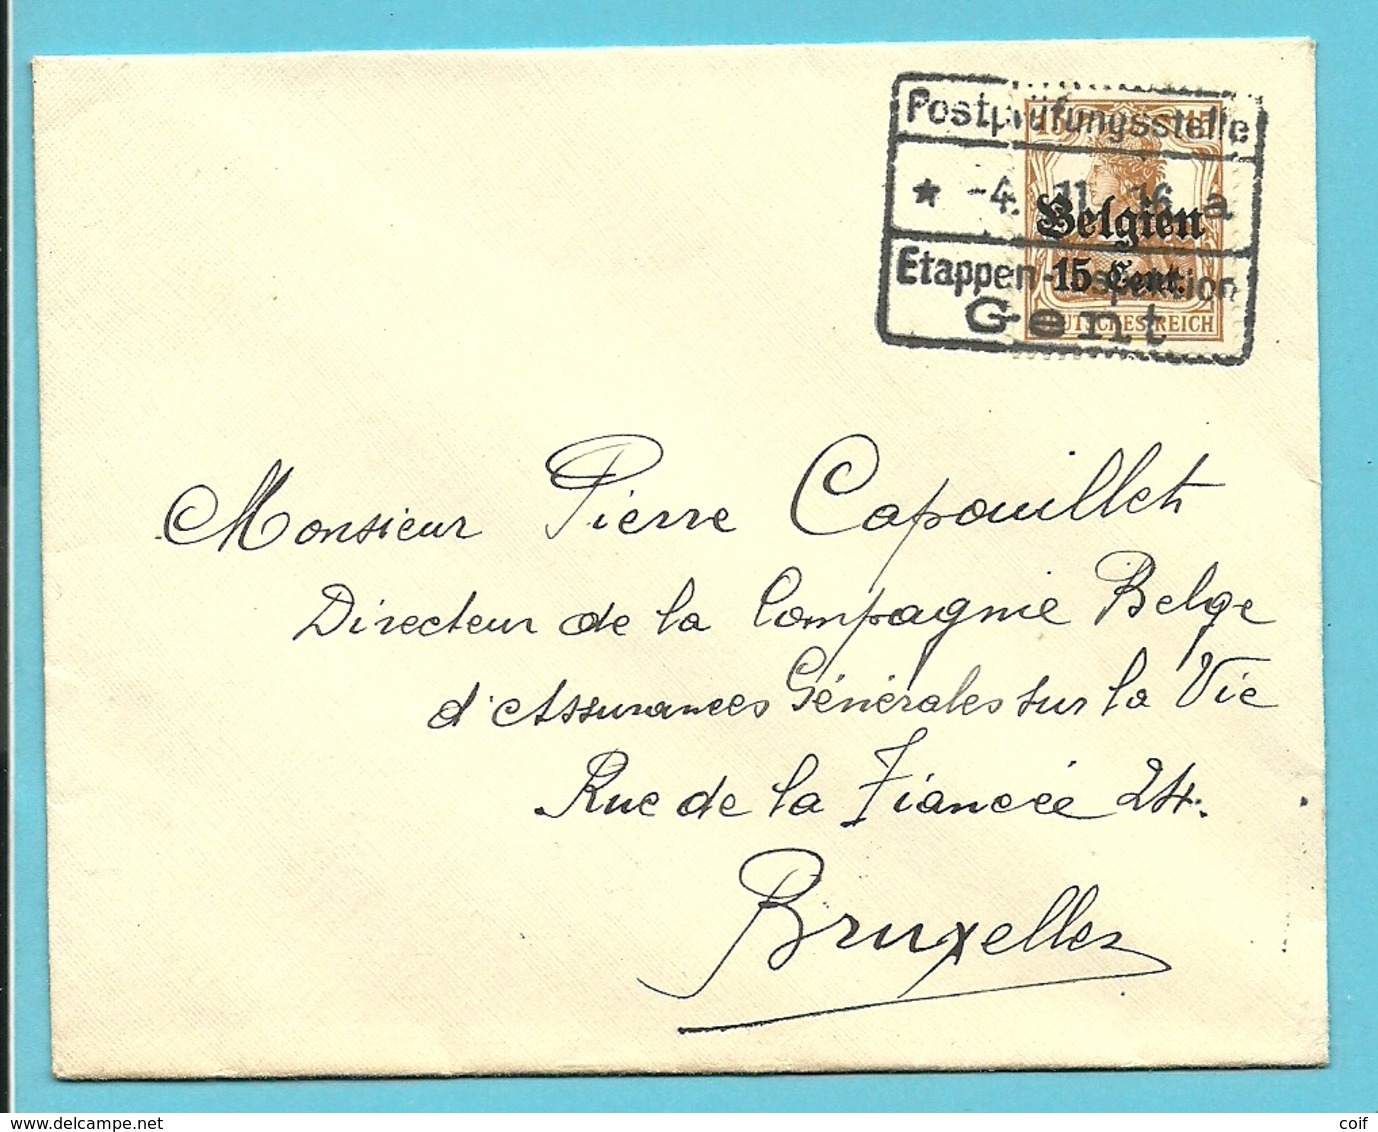 Postprüfungsstelle
* -4. 11. 16. a
Etappen-Inspektion
Gent
15 15
Belgien
15 Cent.
DEUTSCHES REICH
Monsieur Pierre Capouillet
Directeur de la Compagnie Belge
d'Assurances Générales sur la Vie
Rue de la Fiancée 24.
Bruxelles
www.delcampe.net
coif